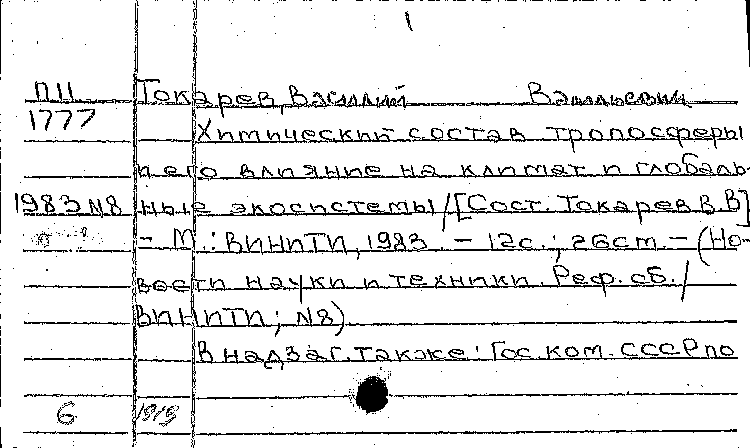 1
П11 Токарев, Василий Васильевич
1777 Химический состав тропосферы
и его влияние на климат и глобаль-
1983 N8 ные экосистемы / [Сост. Токарев В.В]
- М.: ВИНИТИ, 1983. - 12с.; 26см. - (Но-
вости науки и техники. Реф. сб. /
ВИНИТИ; N8)
В надзаг. также: Гос. ком. СССР по
6